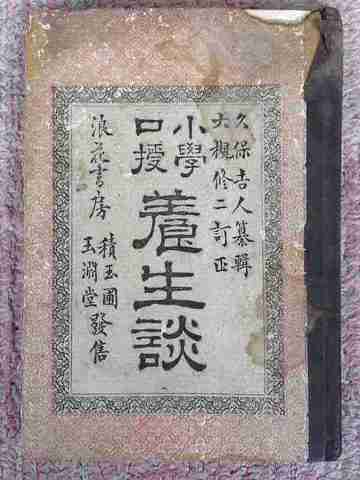 久保吉人纂輯
大槻修二訂正
小學
口授
養生談
浪花書房
積玉圃
玉淵堂
發售